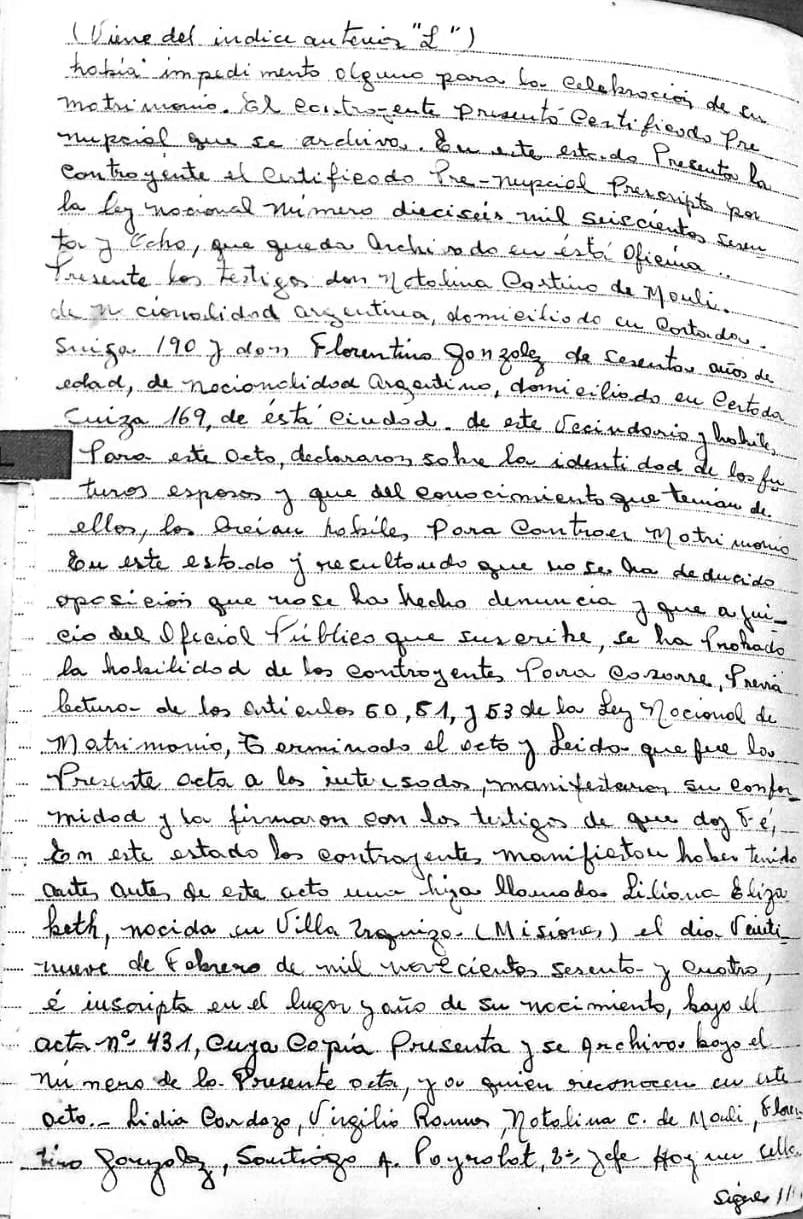 (Viene del indice anterior "L")
había impedimento alguno para la celebración de su
matrimonio. El contrayente presentó Certificado Pre
nupcial que se archiva. En este estado Presenta la
contrayente el Certificado Pre-nupcial Prescripto por
la ley nacional número dieciseis mil seiscientos sesen
ta y Ocho, que queda Archivado en ésta Oficina..
Presente los testigos don Natalina Castino de Mouli.
de n cionalidad argentina, domiciliado en Cortada.
Suiza 190 y don Florentino Gonzalez de sesenta años de
edad, de nacionalidad Argentino, domiciliado en Cortada
Suiza 169, de ésta ciudad. de este Vecindario y habiles
Para este Acto, declararon sobre la identidad de los fu
turos esposos y que del conocimiento que tenían de
ellos, los Creían habiles Para Contraer Matrimonio
En este estado y resultando que no se ha deducido
oposición que no se ha hecho denuncia y que a jui-
cio del Oficial Público que suscribe, se ha Probado
la habilidad de los contrayentes Para casarse, Previa
lectura de los artículos 50, 51, y 53 de la Ley Nacional de
Matrimonio, Terminado el acto y Leida que fue la
Presente acta a los interesados, manifestaron su confor-
midad y la firmaron con los testigos de que doy Fé,
En este estado los contrayentes manifiestan haber tenido
antes antes de este acto una hija llamada Liliana Eliza
beth, nacida en Villa (Misiones) el dia Veinti-
nueve de Febrero de mil novecientos sesenta y cuatro,
é inscripta en el lugar y año de su nacimiento, bajo el
acta nº 431, Cuya Copia Presenta y se Archiva bajo el
número de la Presente acta, y a quien reconocen en este
acto.- Lidia Cardozo, Virgilio Ramos, Natalina C. de Mouli, Floren
tino Gonzalez, Santiago A. Jefe Hay un sello.
Sigue ///